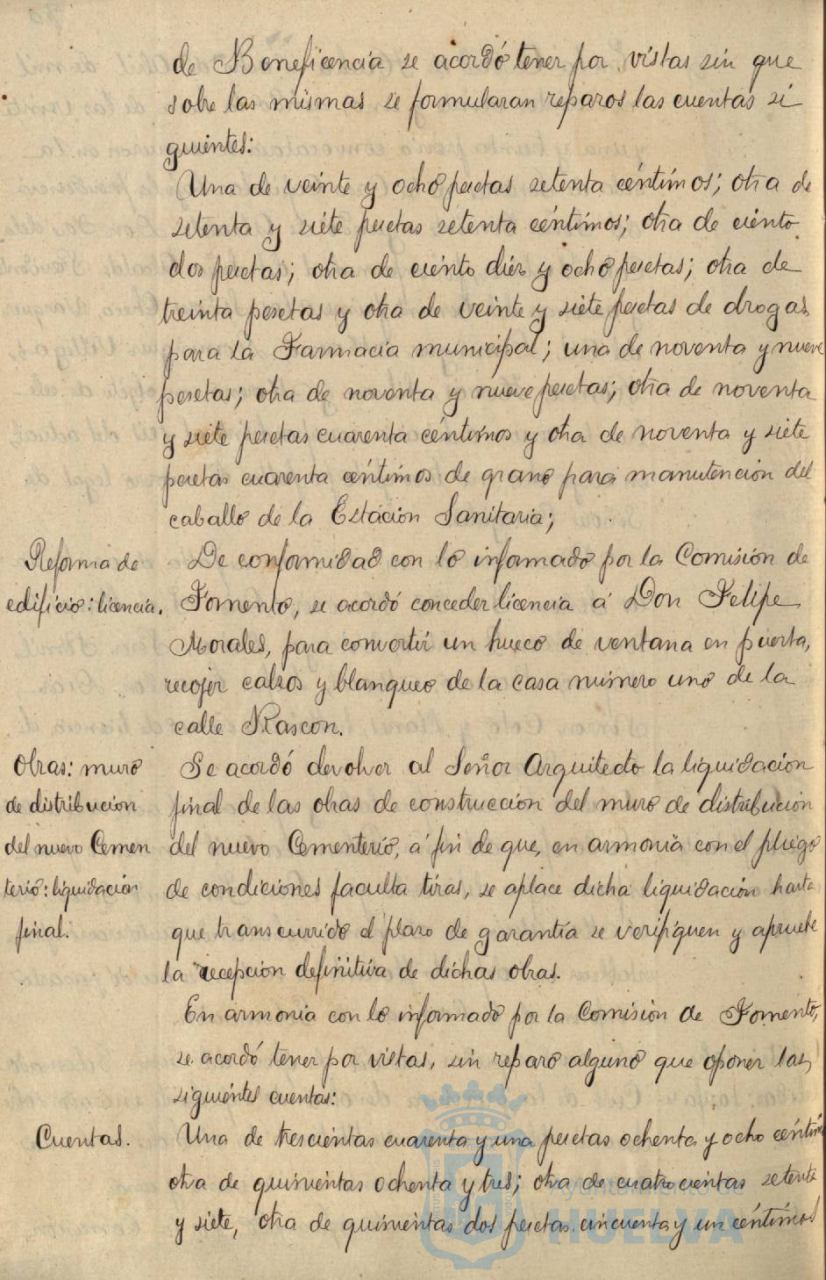 de Beneficencia se acordó tener por vistas sin que
sobre las mismas se formularan reparos las cuentas si
guientes:
Una de veinte y ocho pesetas setenta céntimos; otra de
setenta y siete pesetas setenta céntimos; otra de ciento
dos pesetas; otra de ciento diez y ocho pesetas; otra de
treinta pesetas y otra de veinte y siete pesetas de drogas
para la Farmacia municipal; una de noventa y nueve
pesetas; otra de noventa y nueve pesetas; otra de noventa
y siete pesetas cuarenta céntimos y otra de noventa y siete
pesetas cuarenta céntimos de grano para manutención del
caballo de la Estación Sanitaria;
Reforma de
edificio: licencia.
De conformidad con lo informado por la Comisión de
Fomento, se acordó conceder licencia á Don Felipe
Morales, para convertir un hueco de ventana en puerta,
recojer calzos y blanqueo de la casa número uno de la
calle Rascon.
Obras: muro
de distribucion
del nuevo Cemen
terio: liquidación
final.
Se acordó devolver al Señor Arquitecto la liquidación
final de las obras de construccion del muro de distribución
del nuevo Cementerio, á fin de que, en armonia con el pliego
de condiciones faculta tivas, se aplace dicha liquidación hasta
que transcurrido el plazo de garantía se verifiquen y apruebe
la recepción definitiva de dichas obras.
En armonia con lo informado por la Comisión de Fomento,
se acordó tener por vistas, sin reparo alguno que oponer las
siguientes cuentas:
Cuentas.
Una de trescientas cuarenta y una pesetas ochenta y ocho céntimos
otra de quinientas ochenta y tres; otra de cuatrocientas setenta
y siete, otra de quinientas dos pesetas cincuenta y un céntimos
Ayuntamiento de
HUELVA